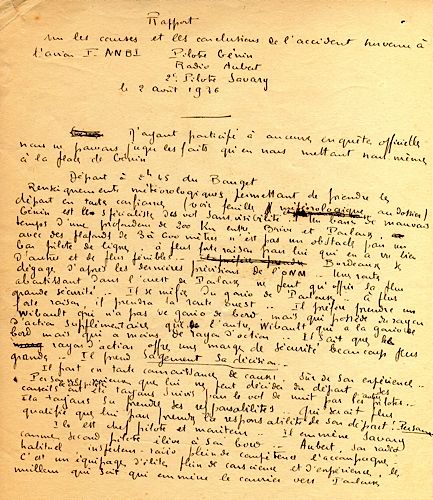 Rapport
sur les causes et les conclusions de l'accident survenu à
l'avion F. ANBI Pilote Génin
Radio Aubert
2e Pilote Savary
le 2 août 1936
N'ayant participé à aucune enquête officielle
nous ne pouvons juger les faits qu'en nous mettant nous même
à la place de Génin
Départ à 2h 45 du Bourget
Renseignements météorologiques permettant de prendre le
départ en toute confiance (voir feuille météorologique au dossier)
Génin est le spécialiste des vol sans visibilité Un banc de mauvais
temps d'une profondeur de 200 Km entre Brive et Toulouse
avec des plafonds de à 600 mètres n'est pas un obstacle pour un
bon pilote de ligne, à plus forte raison pour lui qui en a vu bien
d'autres et de plus pénibles Bordeaux
dégagé d'après les dernières prévisions de l'ONM leur route
aboutissant dans l'ouest de Toulouse ne peut qu'offrir la plus
grande sécurité. Il se méfie du gonio de Toulouse à plus
forte raison, il prendra la route ouest. Il préfère prendre un
Wibault qui n'a pas de gonio de bord mais qui possède du rayon
d'action supplémentaire que l'autre, Wibault qui a la gonio de
bord mais qui a moins de rayon d'action Il sait que le
rayon d'action offre une marge de sécurité beaucoup plus
grande Il prend sagement sa décision.
Il part en toute connaissance de cause. Sûr de son expérience
Personne que lui ne peut décider du départ des
courriers toujours suivis pour le vol de nuit par les pilotes
Il a toujours su prendre ses responsabilités qui serait plus
qualifié que lui pour prendre la responsabilité de son départ? Personne
Il est chef pilote et moniteur Il emmène Savary
comme second pilote élève à son bord Aubert, son radio
habituel inspecteur radio plein de compétence l'accompagne
C'est un équipage d'élite, plein de conscience et d'expérience, le
meilleur qui soit qui emmène le courrier vers Toulouse